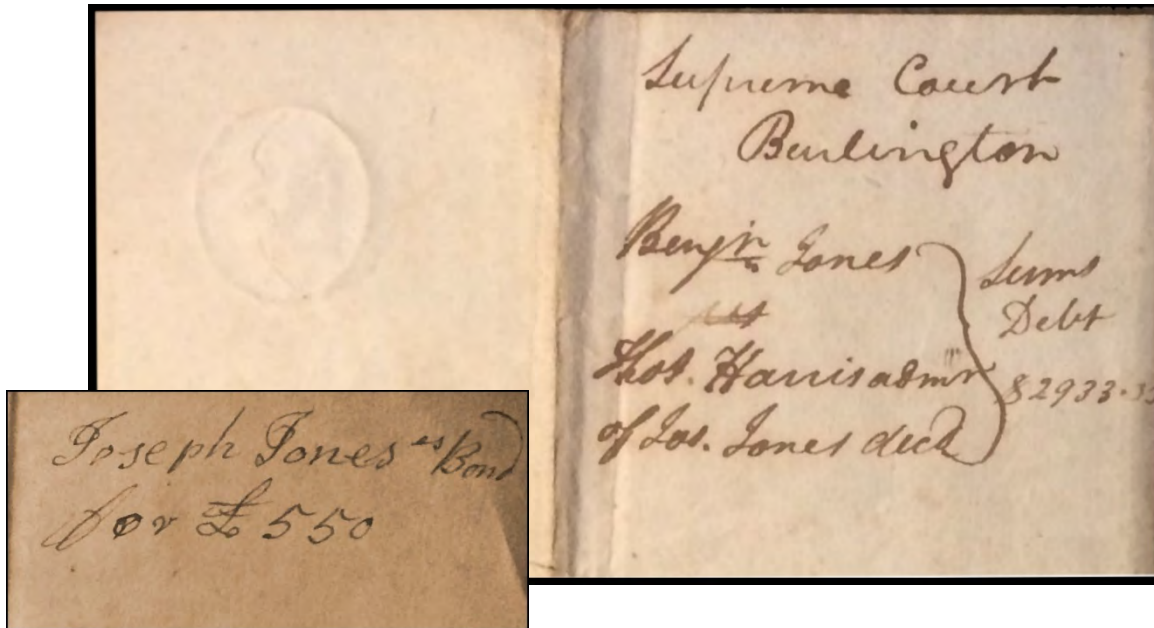 Supreme Court
Burlington
Benjn Jones
vs
Thos. Harris admr
of Jos. Jones decd
Sums
Debt
$2933.33
Joseph Jones'es Bond
for £550